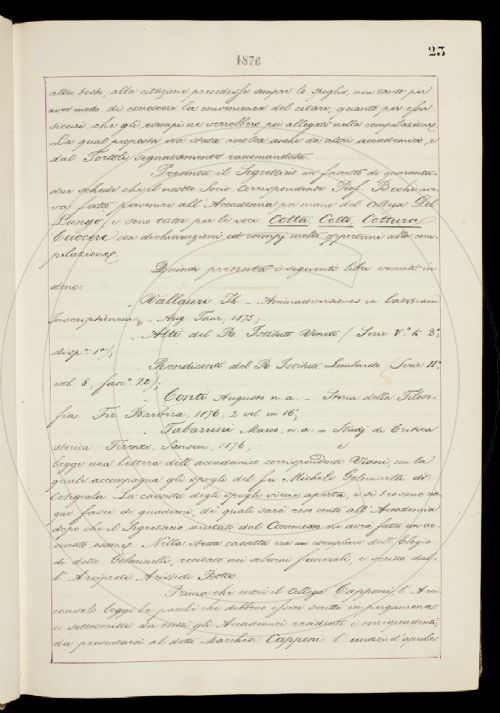 23
1876
altri testi, alla citazione precedesse sempre lo spoglio, non tanto per
aver modo di conoscere la convenienza del citare, quanto per esser
sicuri che gli esempi ne verrebbero poi allegati nella compilazione.
La qual proposta era stata accolta anche da altri accademici, e
dal Tortoli segnatamente raccomandata.
Presenta il Segretario un fascetto di quaranta-
due schede che il nostro Socio Corrispondente Prof. Bechi
fatto pervenire all'Accademia per mano del collega Del
Lungo e sono tutte per le voci Cotta, Cotto, Cottura
Cuocere con dichiarazioni ed esempj molto opportuni alla com-
pilazione.
Quindi presenta i seguenti libri venuti in
dono:
Vallauri Th. - Animadversiones in
inscriptionem - Aug. Taur, 1875;
- Atti del R. Istituto Veneto (Serie V.a t. 2.o
disp.a 1a);
- Rendiconti del R. Istituto Lombardo (Serie IIa
vol. 8, fasc.o 20);
- Conti Augusto n. a. - Storia della Filoso-
fia. Fir. Barbèra, 1876, 2 vol. in 16o;
- Tabarrini Marco, n. a. - Studj di Critica
storica. Firenze, Sansoni, 1876; e
legge una lettera dell'accademico corrispondente Viani, con la
quale accompagna gli spogli del fu Michele
La cassetta degli spogli viene aperta, e si trovano
que fasci di quaderni, de' quali sarà reso conto all'Accademia
dopo che il Segretario aiutato dal Commesso ne avrà fatto un ac-
curato esame. Nella stessa cassetta era un esemplare dell'Elogio
di detto recitato nei solenni funerali, e scritto dal-
l'Arciprete Aristide
Prima che entri il collega Capponi l'Arci-
consolo legge le parole che debbono essere scritte in pergamena
e sottoscritte da tutti gli Accademici residenti e corrispondenti,
da presentarsi al detto Marchese Capponi l'undici d'aprile